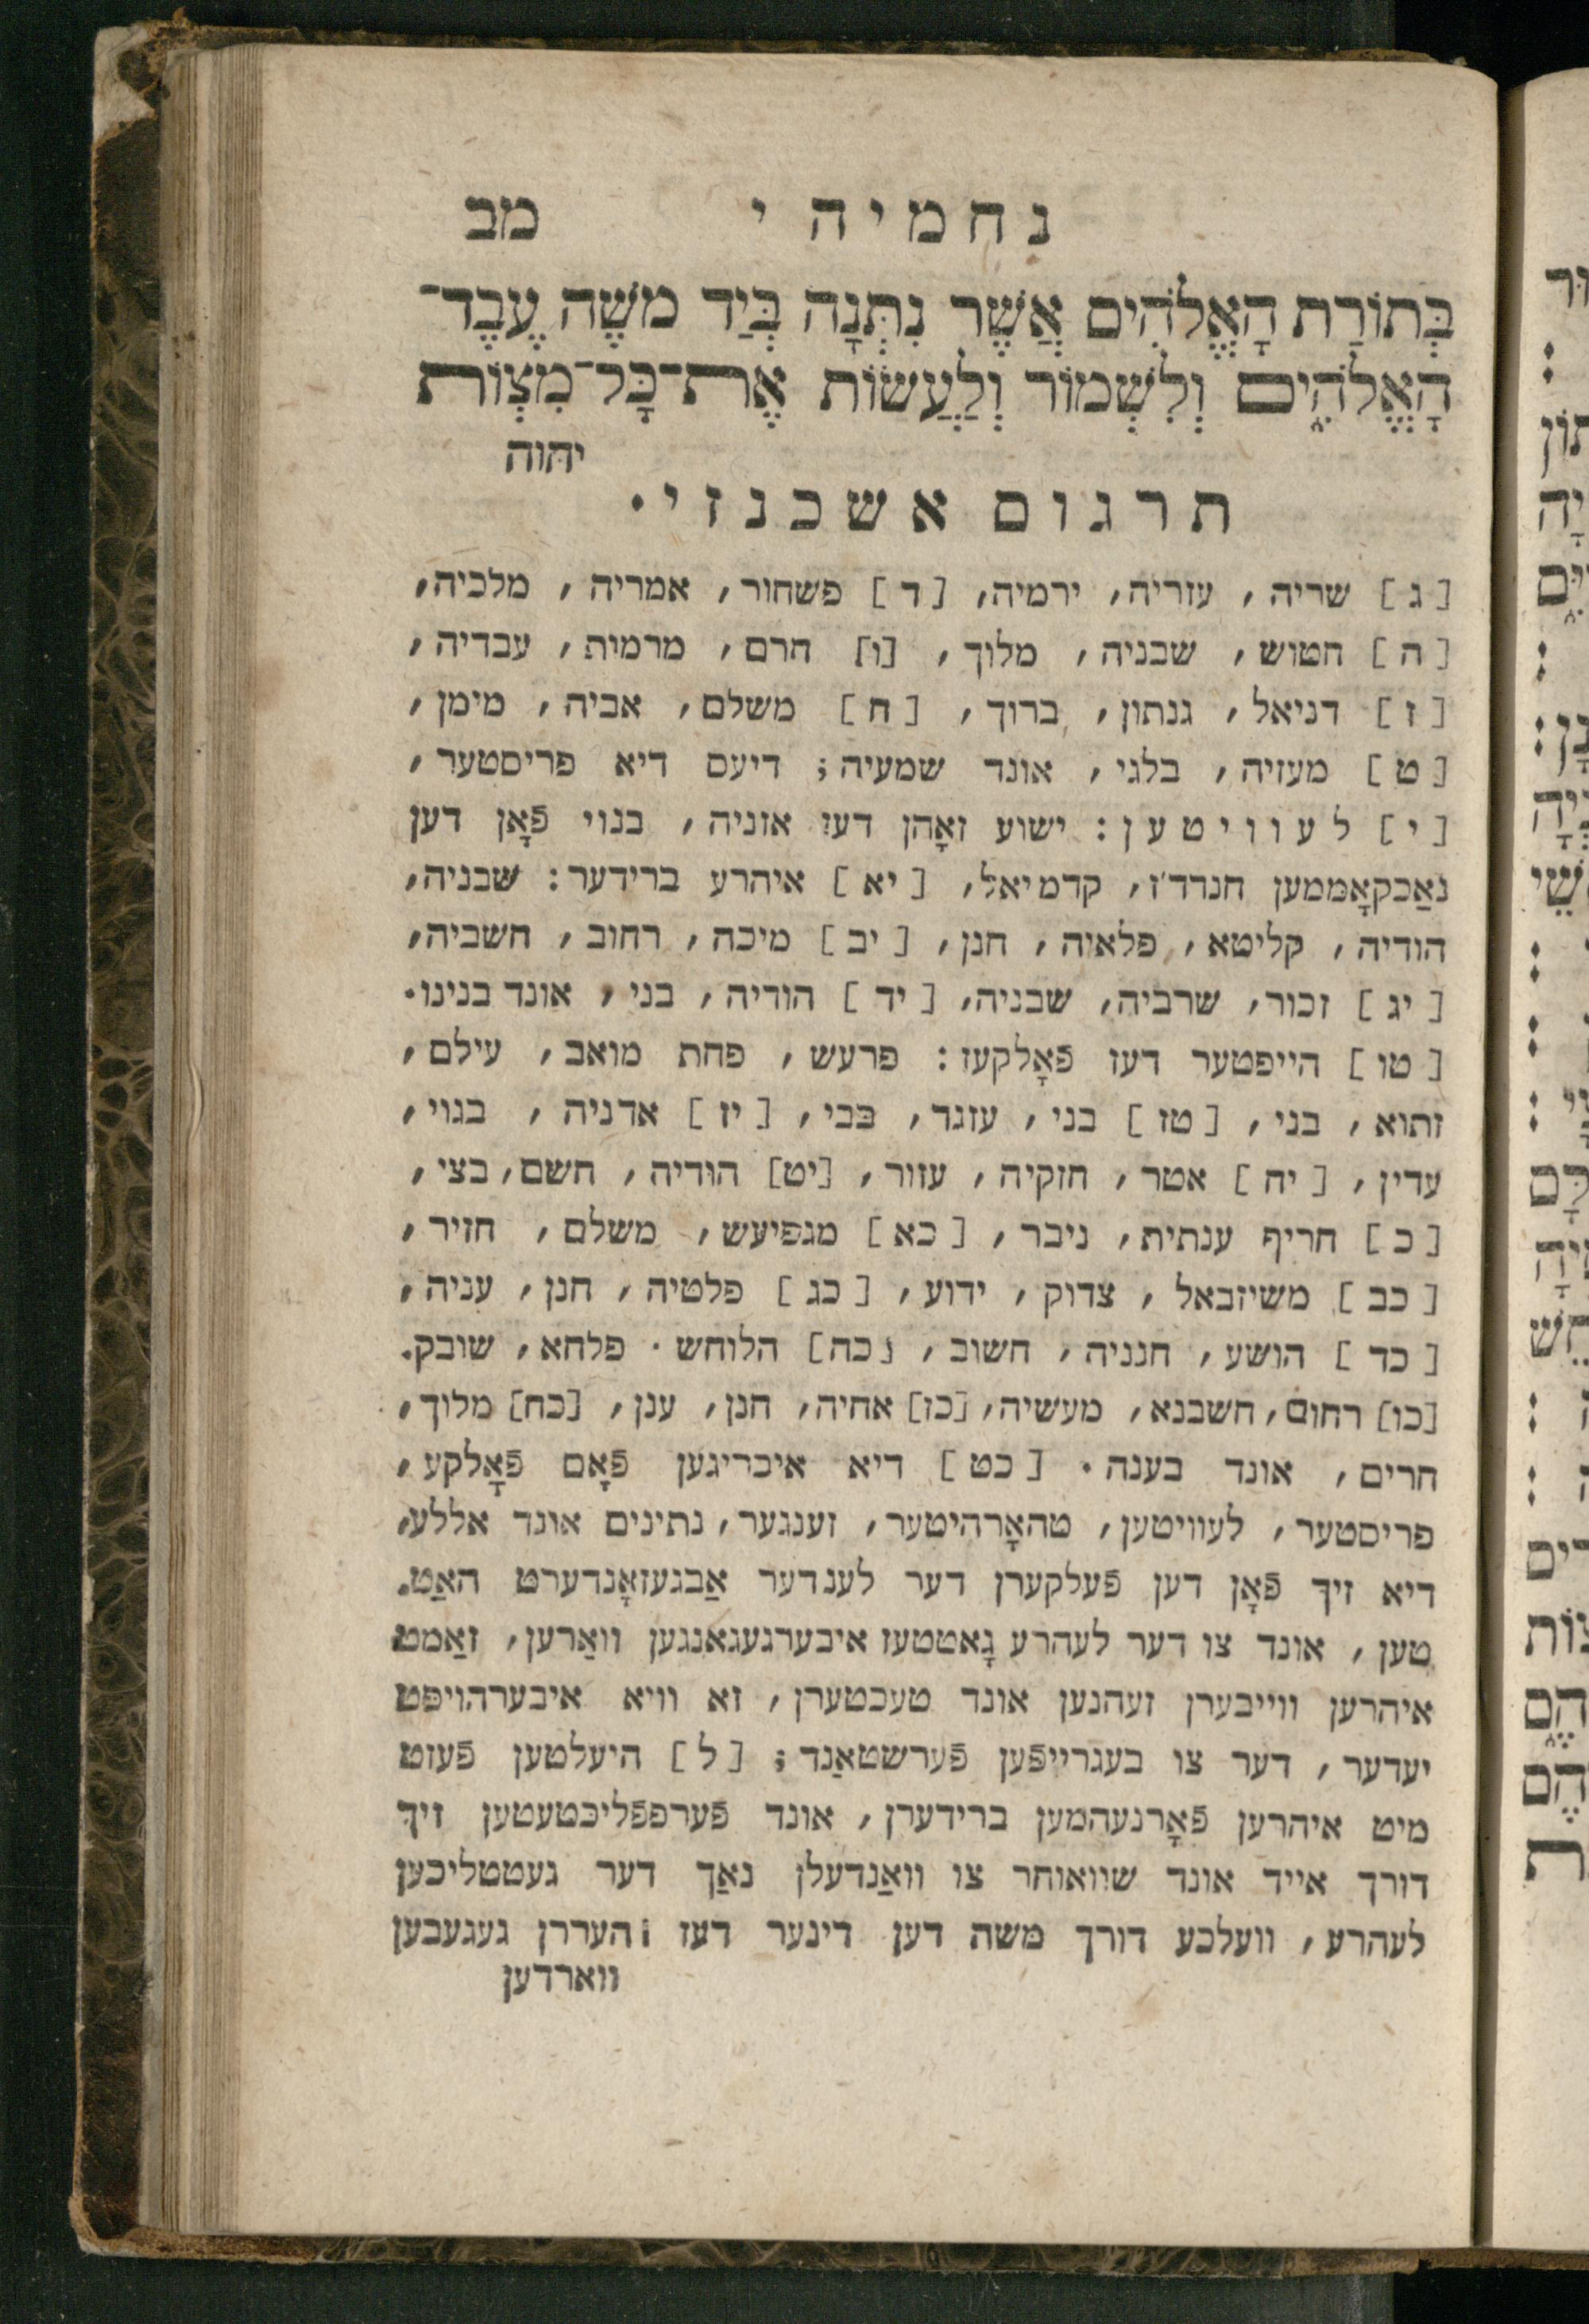 נחמיה י מב
בְּתוֹרַת הָאֱלֹהִים אֲשֶׁר נִתְּנָה בְּיַד מֹשֶׁה עֶבֶד־
הָאֱלֹהִים וְלִשְׁמוֹר וְלַעֲשׂוֹת אֶת־כָּל־מִצְוֹת
יהוה
תרגום אשכנזי.
[ג] שריה, עזריה, ירמיה, [ד] פשחור, אמריה, מלכיה,
[ה] חטוש, שבניה, מלוך, [ו] חרם, מרמות, עבדיה,
[ז] דניאל, גנתון, ברוך, [ח] משלם, אביה, מימן,
[ט] מעזיה, בלגי, אונד שמעיה; דיעס דיא פריסטער,
[י] לעוויטען: ישוע זאָהן דעז אזניה, בנוי פֿאָן דען
נאַכקאָממען חנדד'ז, קדמיאל, [יא] איהרע ברידער: שבניה,
הודיה, קליטא, פלאיה, חנן, [יב] מיכה, רחוב, חשביה,
[יג] זכור, שרביה, שבניה, [יד] הודיה, בני, אונד בנינו.
[טו] הייפטער דעז פֿאָלקעז: פרעש, פחת מואב, עילם,
זתוא, בני, [טז] בני, עזגד, בבי, [יז] אדניה, בגוי,
עדין, [יח] אטר, חזקיה, עזור, [יט] הודיה, חשם, בצי,
[כ] חריף ענתית, ניבר, [כא] מגפיעש, משלם, חזיר,
[כב] משיזבאל, צדוק, ידוע, [כג] פלטיה, חנן, עניה,
[כד] הושע, חנניה, חשוב, [כה] הלוחש. פלחא, שובק.
[כו] רחום, חשבנא, מעשיה, [כז] אחיה, חנן, ענן, [כח] מלוך,
חרים, אונד בענה. [כט] דיא איבריגען פֿאָם פֿאָלקע,
פריסטער, לעוויטען, טהאָרהיטער, זענגער, נתינים אונד אללע,
דיא זיך פֿאָן דען פֿעלקערן דער לענדער אַבגעזאָנדערט האַט.
טען, אונד צו דער לעהרע גָאטטעז איבערגעגאנגען וואַרען, זאַמט
איהרען ווייבערן זעהנען אונד טעכטערן, זא וויא איבערהויפט
יעדער, דער צו בעגרייפֿען פֿערשטאַנד; [ל] היעלטען פֿעזט
מיט איהרען פֿאָרנעהמען ברידערן, אונד פֿערפפֿליכטעטען זיך
דורך אייד אונד שוואוהר צו וואַנדעלן נאַך דער געטטליכען
לעהרע, וועלכע דורך משה דען דינער דעז העררן געגעבען
ווארדען